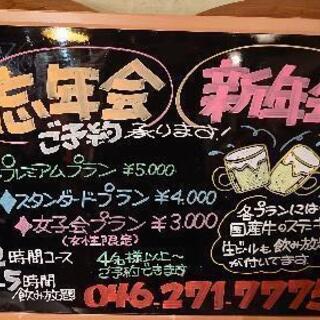 忘年会 新年会
ご予約承ります!
プレミアムプラン ¥5,000
◆スタンダードプラン ¥4,000
◆女子会プラン ¥3,000
(女性限定)
各プランには
国産牛のステーキ
生ビールも飲み放
が付いてます
2時間コース
5時間
飲み放題
4名様以上〜
ご予約できます
046-271-7775